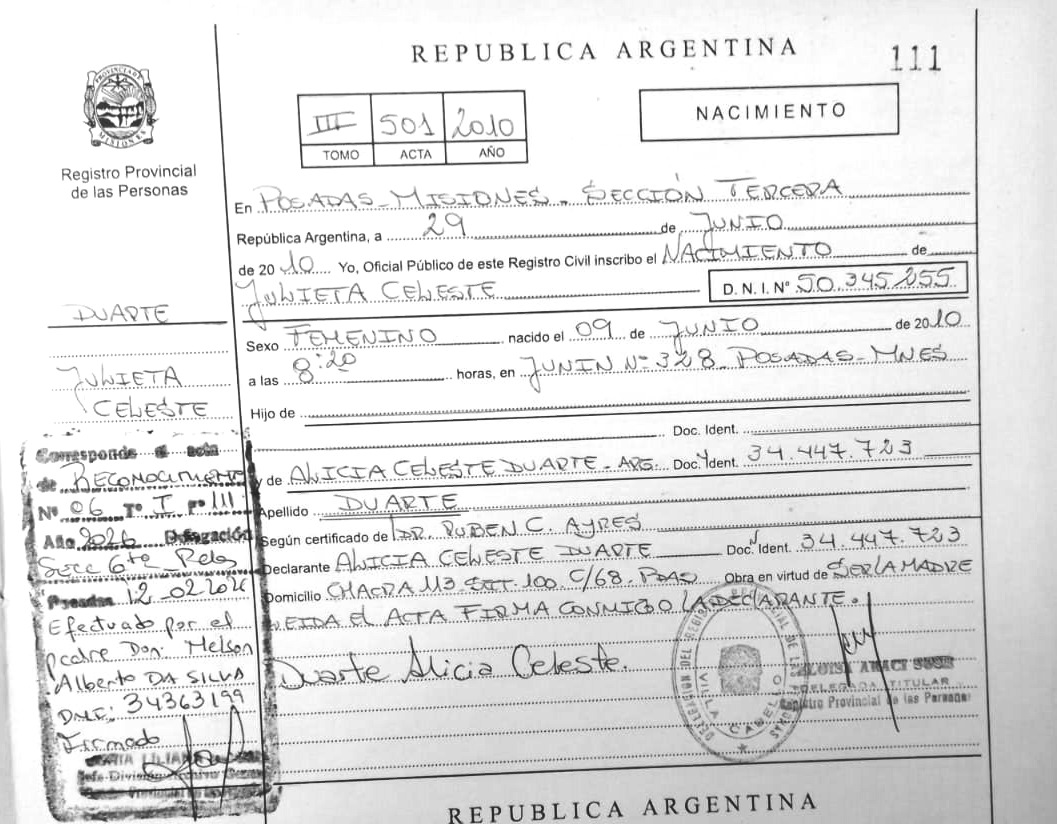 REPUBLICA ARGENTINA
111
PROVINCIA DE MISIONES
Registro Provincial
de las Personas
III 501 2010
TOMO ACTA AÑO
NACIMIENTO
En POSADAS-MISIONES. SECCIÓN TERCERA
República Argentina, a 29 de JUNIO
de 2010 Yo, Oficial Público de este Registro Civil inscribo el NACIMIENTO de
JULIETA CELESTE D. N. I. Nº 50.345.255
Sexo FEMENINO nacido el 09 de JUNIO de 2010
a las 8:20 horas, en JUNIN Nº 328 POSADAS-MNES
Hijo de
Doc. Ident.
y de ALICIA CELESTE DUARTE-ARG. Doc. Ident. 34.447.723
Apellido DUARTE
Según certificado de DR. RUBEN C. AYRES
Declarante ALICIA CELESTE DUARTE Doc. Ident. 34.447.723
Domicilio CHACRA 113 100. C/68. PDAS Obra en virtud de SER LA MADRE
LEIDA EL ACTA FIRMA CONMIGO LA DECLARANTE.
Duarte Alicia Celeste.
DELEGADA TITULAR
Registro Provincial de las Personas
VILLA CABELLO
DUARTE
JULIETA
CELESTE
Corresponde a acta
de RECONOCIMIENTO
Nº 06 Tº I Fº 111
Año 2026 Delegación
Secc 6ta Pdas
Posadas 12-02-2026
Efectuado por el
padre Don: Nelson
Alberto DA SILVA
DNI: 34363199
Firmado
REPUBLICA ARGENTINA